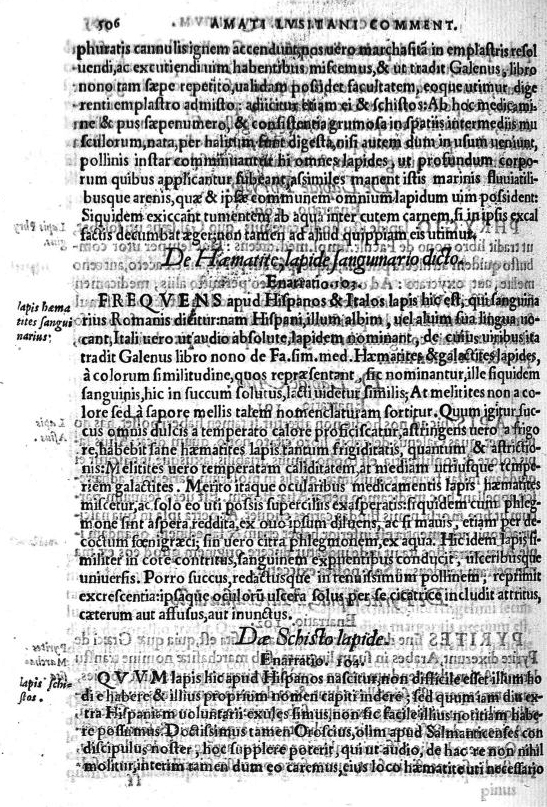 506 AMATI LVSITANI COMMENT.
phuratis cannulis ignem accendunt, nos uero marchasitã in emplastris resol
uendi, ac excutiendi uim habentibus miscemus, & ut tradit Galenus, libro
nono tam sæpe repetito, ualidam possidet facultatem, eoque utimur dige
renti emplastro admisto: adiicitur etiam ei & schistos: Ab hoc medicami-
ne & pus sæpenumero, & consistentia grumosa in spatiis intermediis mu
sculorum, nata, per halitum sunt digesta, nisi autem dum in usum ueniunt,
pollinis instar comminuantur hi omnes lapides, ut profundum corpo-
rum quibus applicantur subeant, assimiles manent istis marinis fluuiatili-
busque arenis, quæ & ipsæ communem omnium lapidum uim possident:
Siquidem exiccant tumentem ab aqua inter cutem carnem, si in ipsis excal
factis decumbat æger, non tamen ad aliud quippiam eis utimur.
De Hæmatite, lapide sanguinario dicto.
Enarratio. 103.
lapis hæma
tites sangui
narius.
FREQVENS apud Hispanos & Italos lapis hic est, qui sanguina
rius Romanis dicitur: nam Hispani, illum albim, uel aluim sua lingua uo-
cant, Itali uero ut audio absolute, lapidem nominant, de cuius uiribus ita
tradit Galenus libro nono de Fa. sim. med. Hæmatites & galactites lapides,
à colorum similitudine, quos repræsentant, sic nominantur, ille siquidem
sanguinis, hic in succum solutus, lacti uidetur similis; At melitites non a co-
lore sed à sapore mellis talem nomenclaturam sortitur. Quum igitur suc-
cus omnis dulcis a temperato calore proficiscatur, astringens uero a frigo
re, habebit sane hæmatites lapis tantum frigiditatis, quantum & astrictio-
nis: Melitites uero temperatam caliditatem, at mediam utriusque tempe-
riem galactites. Merito itaque ocularibus medicamentis lapis hæmatites
miscetur, ac solo eo uti possis superciliis exasperatis: siquidem cum phleg-
mone sint aspera, reddita, ex ouo ipsum diluens, ac si mauis, etiam per de-
coctum fœnigræci; sin uero citra phlegmonem, ex aqua. Hic idem lapis si-
militer in cote contritus, sanguinem expuentibus conducit, ulceribusque
uniuersis. Porro succus, redactusque in tenuissimum pollinem, reprimit
excrescentia: ipsaque oculorũ ulcera solus per se cicatrice includit attritus,
cæterum aut assusus, aut inunctus.
Dæ Schisto lapide.
Enarratio. 104.
lapis schi-
stos.
QVVM lapis hic apud Hispanos nascitur, non difficile esset illum ho
die habere & illius proprium nomen capiti indere; sed quum iam diu ex-
tra Hispaniam uoluntarii exules simus, non sic facile illius notitiam habe-
re possumus. Doctissimus tamen Oroscius, olim apud Salmanticenses con
discipulus noster, hoc supplere poterit, qui ut audio, de hac re non nihil
molitur, interim tamen dum eo caremus, eius loco hæmatite uti necessario